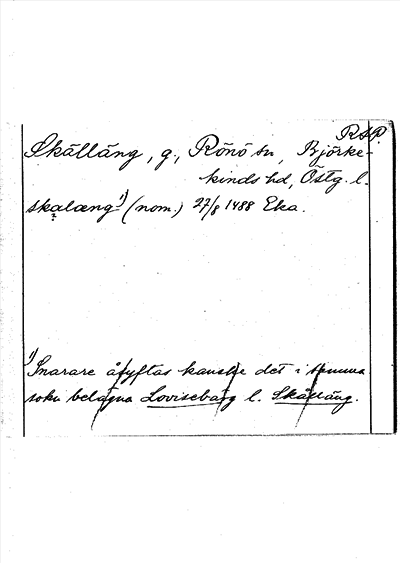 RSP.
Skälläng, g., Rönö sn, Björke-
kinds hd, Östg. l.
skalæng 1) (nom.) 27/8 1488 Eka.
1) Snarare åsyftas kanske det i samma
sokn belägna Loviseberg l. Skälläng.